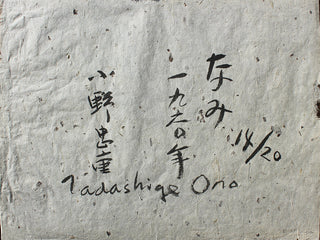 なみ
14/20
一九六〇年
小野忠重
Tadashige Ono